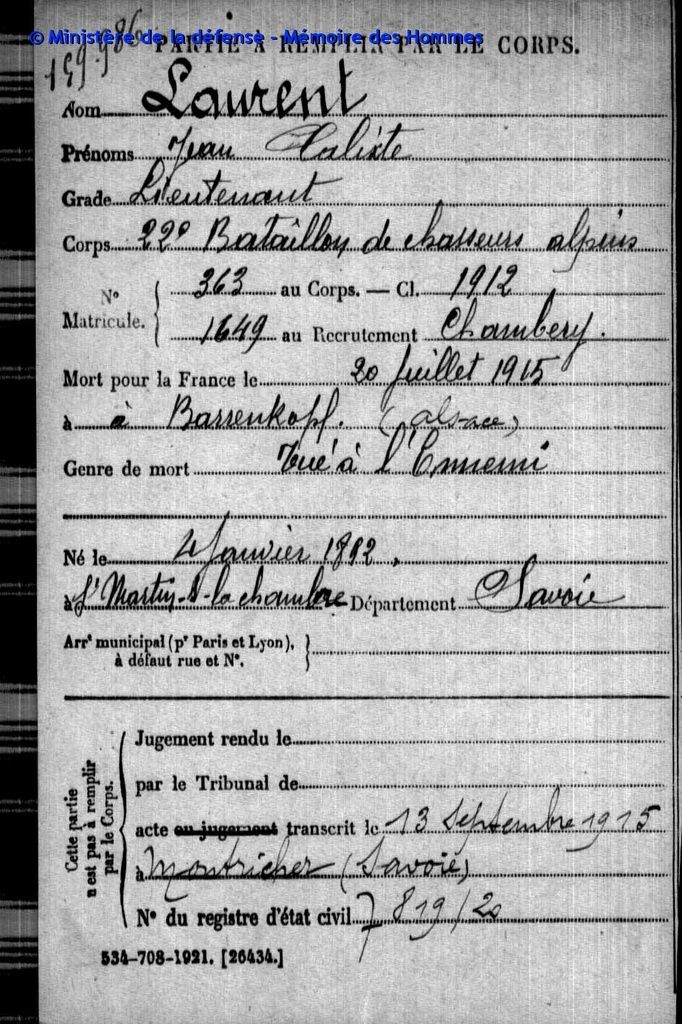 © Ministère de la défense - Mémoire des Hommes
159.986
PARTIE A REMPLIR PAR LE CORPS.
Nom Laurent
Prénoms Jean Calixte
Grade Lieutenant
Corps 22e Bataillon de chasseurs alpins
No Matricule. 363 au Corps. — Cl. 1912
1649 au Recrutement Chambéry.
Mort pour la France le 20 Juillet 1915
à à Barrenkopf. (alsace)
Genre de mort Tué à l'Ennemi
Né le 4 Janvier 1892.
à St Martin-s-la chambre Département Savoie
Arrt municipal (pr Paris et Lyon),
à défaut rue et No.
Cette partie
n'est pas à remplir
par le Corps.
Jugement rendu le
par le Tribunal de
acte ou jugement transcrit le 13 Septembre 1915
à Montricher (Savoie)
No du registre d'état civil 7 819/20
534-708-1921. [26434.]